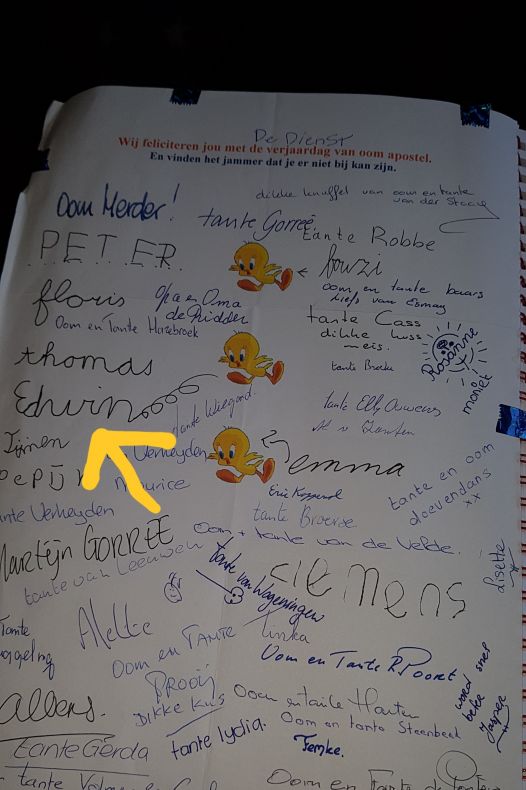 De Dienst
Wij feliciteren jou met de verjaardag van oom apostel.
En vinden het jammer dat je er niet bij kan zijn.
dikke knuffel van oom en tante
van der
Oom Merder!
tante Gorreé
tante Robbe
P.E.T.E.R.
bowzi
oom en tante baars
liefs van Esmay
floris
Opa en Oma
de Ridder
Oom en Tante Hazebroek
tante Cass
dikke kuss
Rosanne
moniek
thomas
tante
Edwin
tante
tante Elly Ouwens
Tijmen
Verheyden
emma
tante en oom
doevendans
xx
Maurice
Eric
tante Verheyden
tante Broerse
Marteijn GORREE
Oom + tante van de Velde.
tante van Leeuwen
tante van Wageningen
Clemens
lisette
Tante
Alette
Tinka
OOM EN TANTE
PROOIJ
DIKKE KUS
Oom en Tante R Poort
Oom en tante Houten
Oom en tante Steenbeek
word snel
beter
Jasper
albers.
tante lydia.
Femke.
tante Gerda
tante
Oom en Tante de